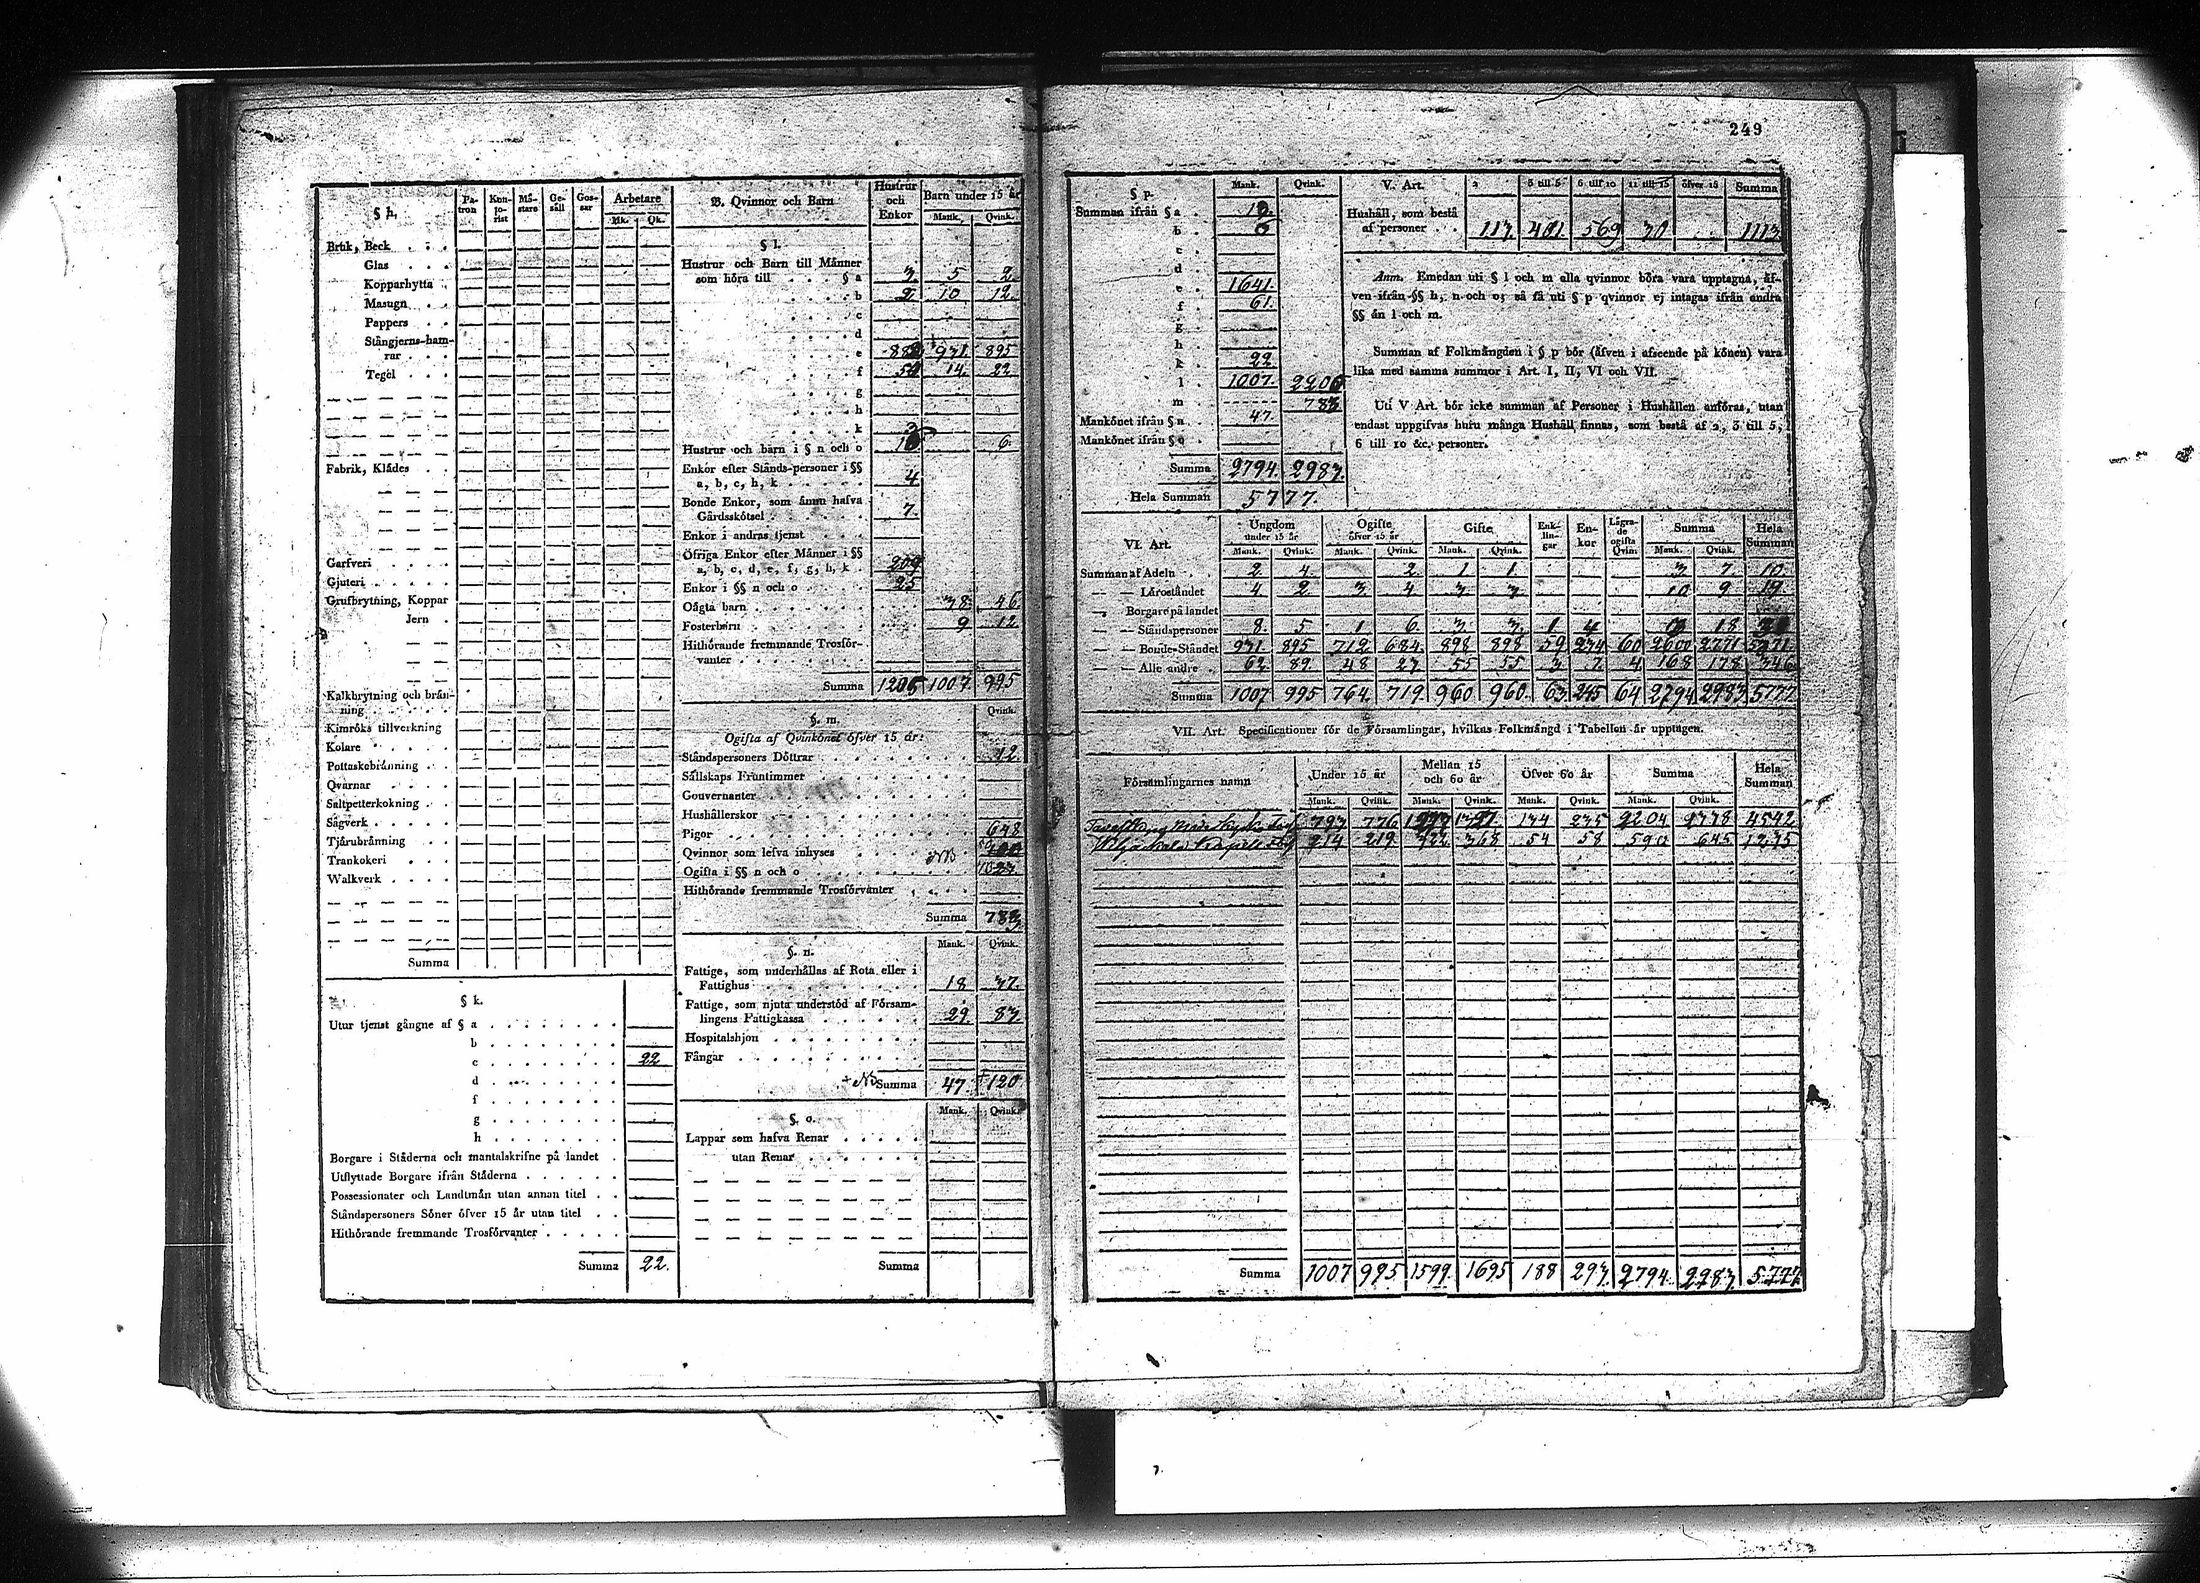 249
§ h. Patron Kontorist Mästare Gesäll Gossar Arbetare
Mk. Qk.
Bruk, Beck . . .
Glas . . .
Kopparhytta .
Masugn . .
Pappers . .
Stångjerns-ham-
rar . . .
Tegel . . .
Fabrik, Klädes . .
Garfveri . . . .
Gjuteri . . . . .
Grufbrytning, Koppar
Jern .
Kalkbrytning och brän-
ning . . . . .
Kimröks tillverkning
Kolare . . . . .
Pottaskebränning . .
Qvarnar . . . .
Saltpetterkokning . .
Sågverk . . . . .
Tjärubränning . .
Trankokeri . . .
Walkverk . . . .
Summa
§ k.
Utur tjenst gångne af § a . . . . . . .
b . . . . . . .
c . . . . . . . 22
d . . . . . . .
f . . . . . . .
g . . . . . . .
h . . . . . . .
Borgare i Städerna och mantalskrifne på landet .
Utflyttade Borgare ifrån Städerna . . . . . .
Possessionater och Landtmän utan annan titel . .
Ståndspersoners Söner öfver 15 år utan titel . .
Hithörande fremmande Trosförvanter . . . . .
Summa 22.
B. Qvinnor och Barn Hustrur och Enkor Barn under 15 år
Mank. Qvink.
§ l.
Hustrur och Barn till Männer
som höra till . . . § a 3 5 2
. . . . b 2 10 12.
. . . . c
. . . . d
. . . . e 931 895
. . . . f 14. 22
. . . . g
. . . . h
. . . . k
Hustrur och barn i § n och o 6.
Enkor efter Stånds-personer i §§
a, b, c, h, k . . . . . 4
Bonde Enkor, som ännu hafva
Gårdsskötsel . . . . . 7.
Enkor i andras tjenst . . .
Öfriga Enkor efter Männer i §§
a, b, c, d, e, f, g, h, k . 209
Enkor i §§ n och o . . . . 25
Oägta barn . . . . . . . 38. 46.
Fosterbarn . . . . . . . 9 12
Hithörande fremmande Trosför-
vanter . . . . . . .
Summa 1205 1007. 995
§. m. Qvink.
Ogifta af Qvinkönet öfver 15 år:
Ståndspersoners Döttrar . . . . . . . . 12.
Sällskaps Fruntimmer . . . . . . . .
Gouvernanter . . . . . . . . . . .
Hushållerskor . . . . . . . . . . .
Pigor . . . . . . . . . . . . . 648
Qvinnor som lefva inhyses . . . . NB
Ogifta i §§ n och o . . . . . . . .
Hithörande fremmande Trosförvanter . . . .
Summa 783
§. n. Mank. Qvink.
Fattige, som underhållas af Rota eller i
Fattighus . . . . . . . . . 18 37.
Fattige, som njuta understöd af Försam-
lingens Fattigkassa . . . . . . 29. 83
Hospitalshjon . . . . . . . . .
Fångar . . . . . . . . . . .
+ NB Summa 47. + 120
§. o. Mank. Qvink.
Lappar som hafva Renar . . . . .
utan Renar . . . . . . .
Summa
§ p. Mank. Qvink.
Summan ifrån § a .
b .
c .
d .
e . 1641.
f . 61.
g .
h .
k . 22
l . 1007. 2205
m . 783
Mankönet ifrån § n . . 47.
Mankönet ifrån § o . .
Summa 2794. 2983.
Hela Summan 5777.
V. Art. 2 3 till 5 6 till 10 11 till 15 öfver 15 Summa
Hushåll, som bestå
af personer . . . 113. 401. 569 30 . . 1113
Anm. Emedan uti § l och m alla qvinnor böra vara upptagna, äf-
ven ifrån §§ h, n och o; så få uti § p qvinnor ej intagas ifrån andra
§§ än l och m.
Summan af Folkmängden i § p bör (äfven i afseende på könen) vara
lika med samma summor i Art. I, II, VI och VII.
Uti V Art. bör icke summan af Personer i Hushållen anföras, utan
endast uppgifvas huru många Hushåll finnas, som bestå af 2, 3 till 5,
6 till 10 &c. personer.
VI. Art. Ungdom under 15 år Ogifte öfver 15 år Gifte Enklingar Enkor Lägrade ogifta Qvin. Summa Hela Summan
Mank. Qvink. Mank. Qvink. Mank. Qvink. Mank. Qvink.
Summan af Adeln . . 2 4. 2 1 1 3 7 10
— — Läroståndet 4 2 3 4 3 3 10 9 19.
— Borgare på landet
— — Ståndspersoner 8. 5 1 6. 3 3. 1 4 18
— — Bonde-Ståndet 931. 895 712 684 898 898 59 234 60 2600 2771 5371.
— — Alle andre . 62 89. 48 23 55 55 3. 7. 4 168 178. 346
Summa 1007 995 764. 719. 960 960. 63. 245 64 2794 2983 5777
VII. Art. Specificationer för de Församlingar, hvilkas Folkmängd i Tabellen är upptagen.
Församlingarnes namn Under 15 år Mellan 15 och 60 år Öfver 60 år Summa Hela Summan
Mank. Qvink. Mank. Qvink. Mank. Qvink. Mank. Qvink.
793 776 134 235 2204 2338 4542
214 219. 322 368 54 58 590 645 1235
Summa 1007 995. 1599. 1695 188 293. 2794. 2983. 5777.